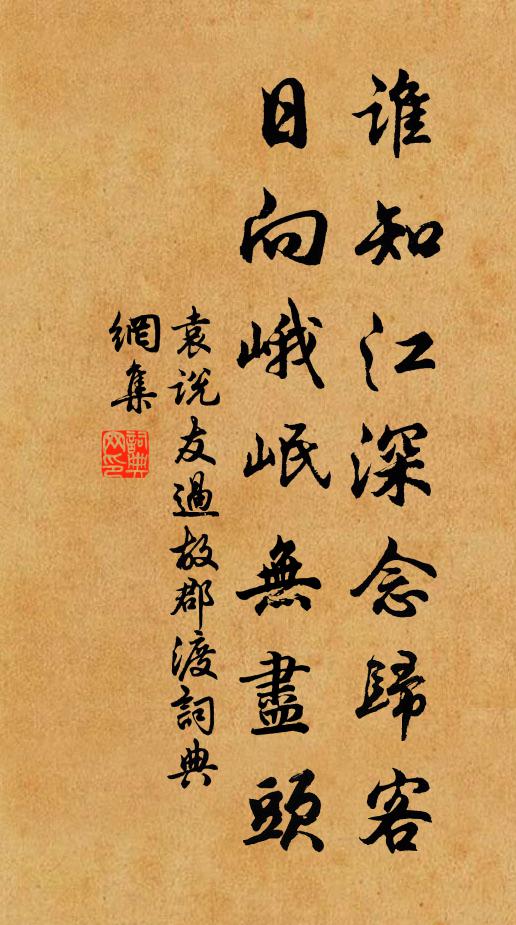 誰知江深念歸客
日向峨岷無盡頭
袁说友過故郡渡詞典
網集
詞典
网印